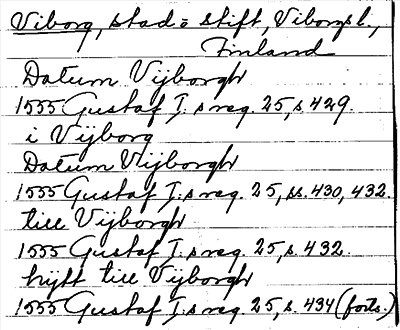 Viborg, stad o stift, Viborgs l.,
Finland
Datum Vijborgh
1555 Gustaf I:s reg. 25, s. 429.
i Vijborg
Datum Vijborgh
1555 Gustaf I:s reg. 25, ss. 430, 432.
till Vijborgh
1555 Gustaf I:s reg. 25, s. 432
hijtt till Vijborgh
1555 Gustaf I:s reg. 25, s. 434 (forts.)